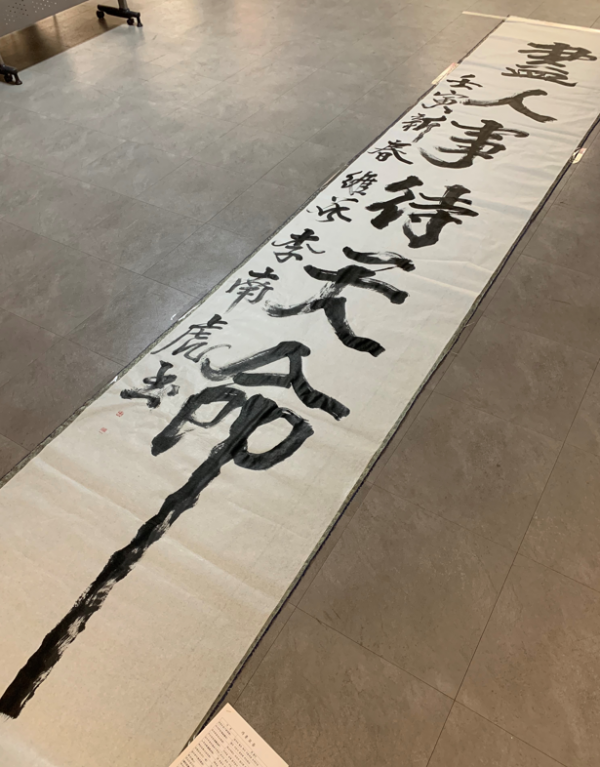 盡人事待天命
壬寅新春 維谷 李南虎書